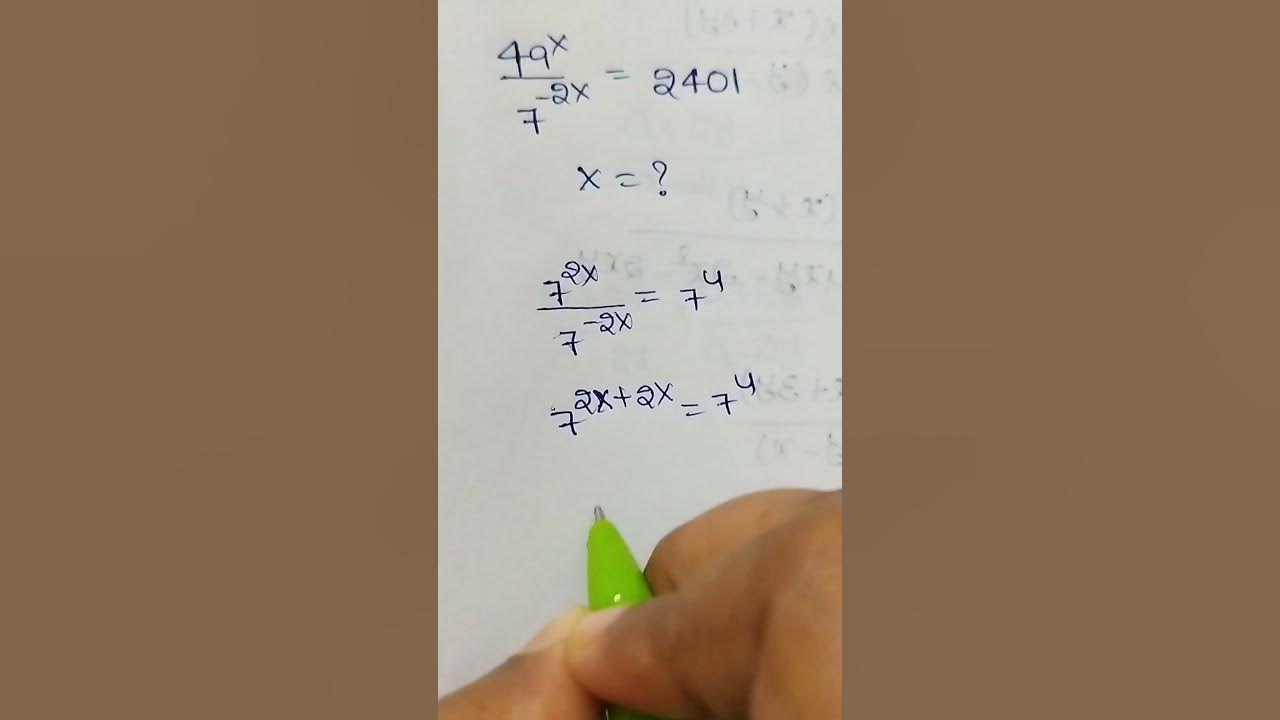 49^x / 7^-2x = 2401
x = ?
7^2x / 7^-2x = 7^4
7^2x+2x = 7^4